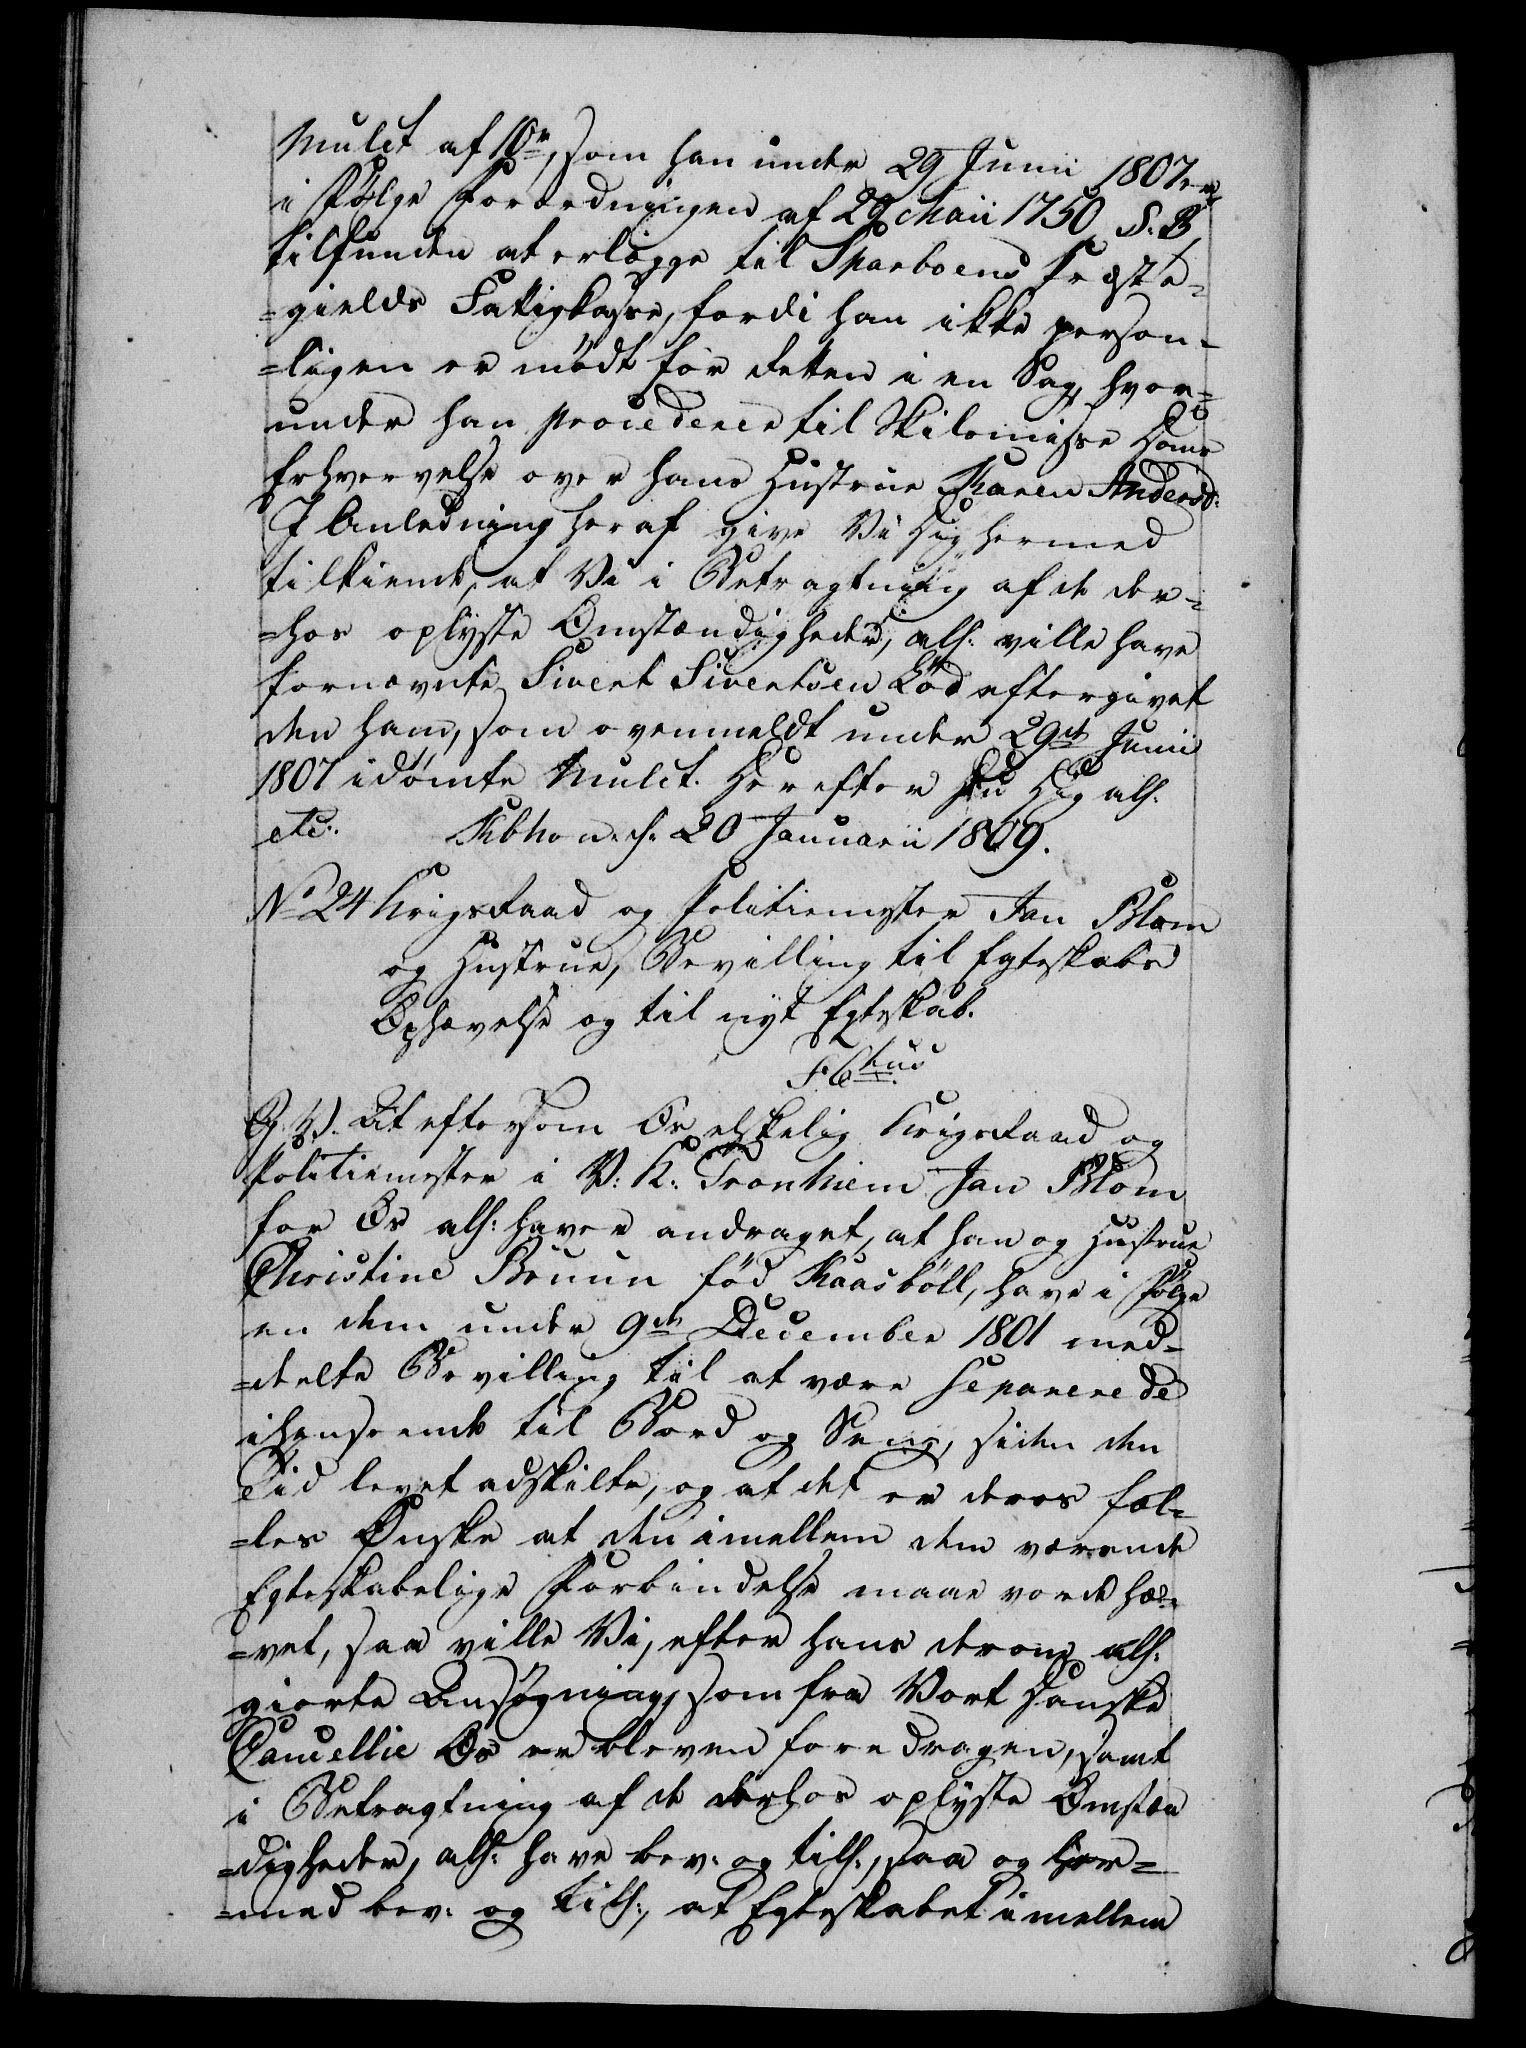 Mulct af 10 rd, som han under 29 Junii 1807 er
i Følge Forordningen af 29 Maii 1750 S: B
tilfunden at erlægge til Sparboens Præste-
=gields Fattigkasse, fordi han ikke person-
=ligen er mødt for Retten i en Sag, hvor-
under han procederer til Skilsmisse Doms
Erhvervelse over hans Hustrue Karen Andersd:
I Anledning heraf give Vi Dig hermed
tilkiende, at Vi i Betragtning af de der-
=hos oplyste Omstændigheder, alh: ville have
fornævnte Sivert Sivertsen Lød eftergivet
den ham, som ovenmeldt under 29de Junii
1807 idømte Mulct. Herefter Du Dig alh:
etc: Kbhavn d: 20 Januarii 1809.
No 24 Krigsraad og Politiemester Jan Blom
og Hustrue, Bevilling til Egteskabs
Ophævelse og til nyt Egteskab.
F: 6tus
G. V. At eftersom Os elskelig Krigsraad og
Politiemester i V: K: Tronhiem Jan Blom
for Os alh: haver andraget, at han og Hustrue
Christine Bruun fød Kaasbøll, have i Følge
en dem under 9de December 1801 med-
=deelte Bevilling til at være separerede
ihenseende til Bord og Seng, siden den
Tid levet adskilte, og at det er deres fæl-
=les Ønske at den imellem dem værende
Egteskabelige Forbindelse maae vorde hæ-
=vet, saa ville Vi, efter hans derom alh:
giorte Ansøgning, som fra Vort Danske
Cancellie Os er bleven foredragen, samt
i Betragtning af de derhos oplyste Omstæn
=digheder, alh: have bev: og tilh:, saa og her=
=med bev: og tilh:, at Egteskabet imellem